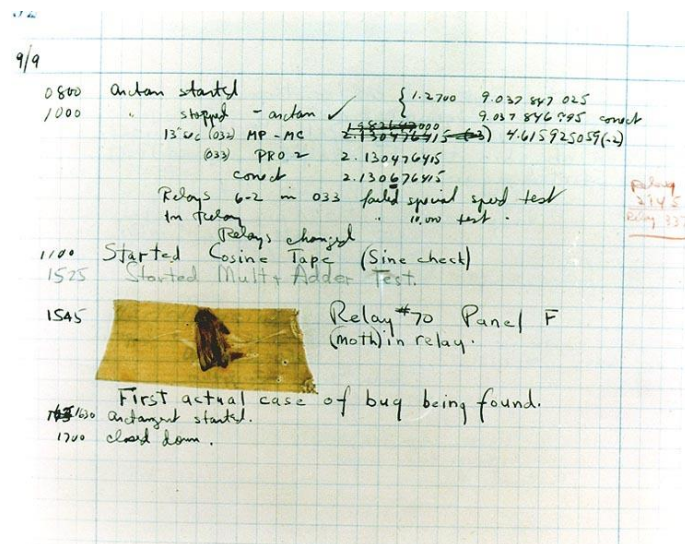 9/9
0800 Antan started
1000 " stopped - antan ✓ { 1.2700 9.037 847 025
9.037 846 995 conect
13"uc (032) MP - MC 2.130476415 4.615925059(-2)
(033) PRO 2 2.130476415
conect 2.130676415
Relays 6-2 in 033 failed special speed test
In relay " 10.000 test.
Relays changed
1100 Started Cosine Tape (Sine check)
1525 Started Mult + Adder Test.
1545 Relay #70 Panel F
(moth) in relay.
First actual case of bug being found.
1630 Antangent started.
1700 closed down.